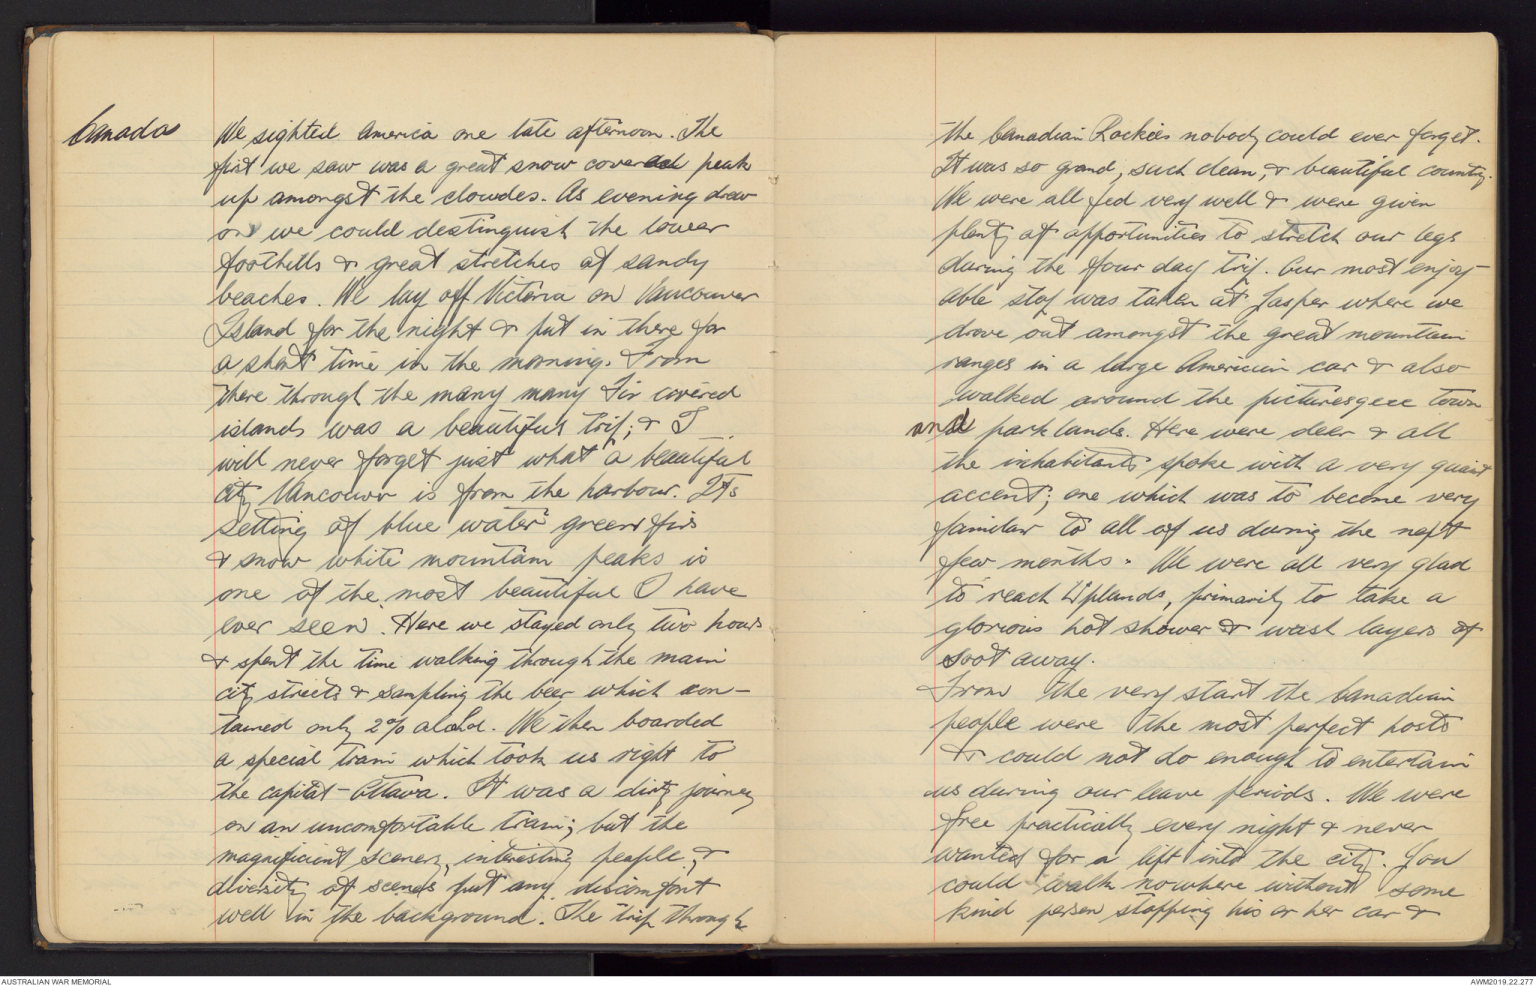 Canada
We sighted America one late afternoon. The
first we saw was a great snow covered peak
up amongst the cloudes. As evening drew
on we could destinguish the lower
foothills & great stretches of sandy
beaches. We lay off Victoria on Vancouver
Island for the night & put in there for
a short time in the morning. From
there through the many many Fir covered
islands was a beautiful trip; & I
will never forget just what a beautiful
city Vancouver is from the harbour. It's
setting of blue water green firs
& snow white mountain peaks is
one of the most beautiful I have
ever seen. Here we stayed only two hours
& spent the time walking through the main
city streets & sampling the beer which con-
tained only 2% alchol. We then boarded
a special train which took us right to
the capital - Ottawa. It was a dirty journey
on an uncomfortable train; but the
magnificient scenery, interesting people, &
diversity of scenes put any discomfort
well in the background. The trip through
the Canadian Rockies nobody could ever forget.
It was so grand, such clean, & beautiful country.
We were all fed very well & were given
plenty of opportunities to stretch our legs
during the four day trip. Our most enjoy-
able stop was taken at Jasper where we
drove out amongst the great mountain
ranges in a large American car & also
walked around the picturesque town
and park lands. Here were deer & all
the inhabitants spoke with a very quaint
accent; one which was to become very
familar to all of us during the next
few months. We were all very glad
to reach Uplands, primarily to take a
glorious hot shower & wash layers of
soot away.
From the very start the Canadian
people were the most perfect hosts
& could not do enough to entertain
us during our leave periods. We were
free practically every night & never
wanted for a lift into the city. You
could walk nowhere without some
kind person stopping his or her car &
AUSTRALIAN WAR MEMORIAL
AWM2019.22.277